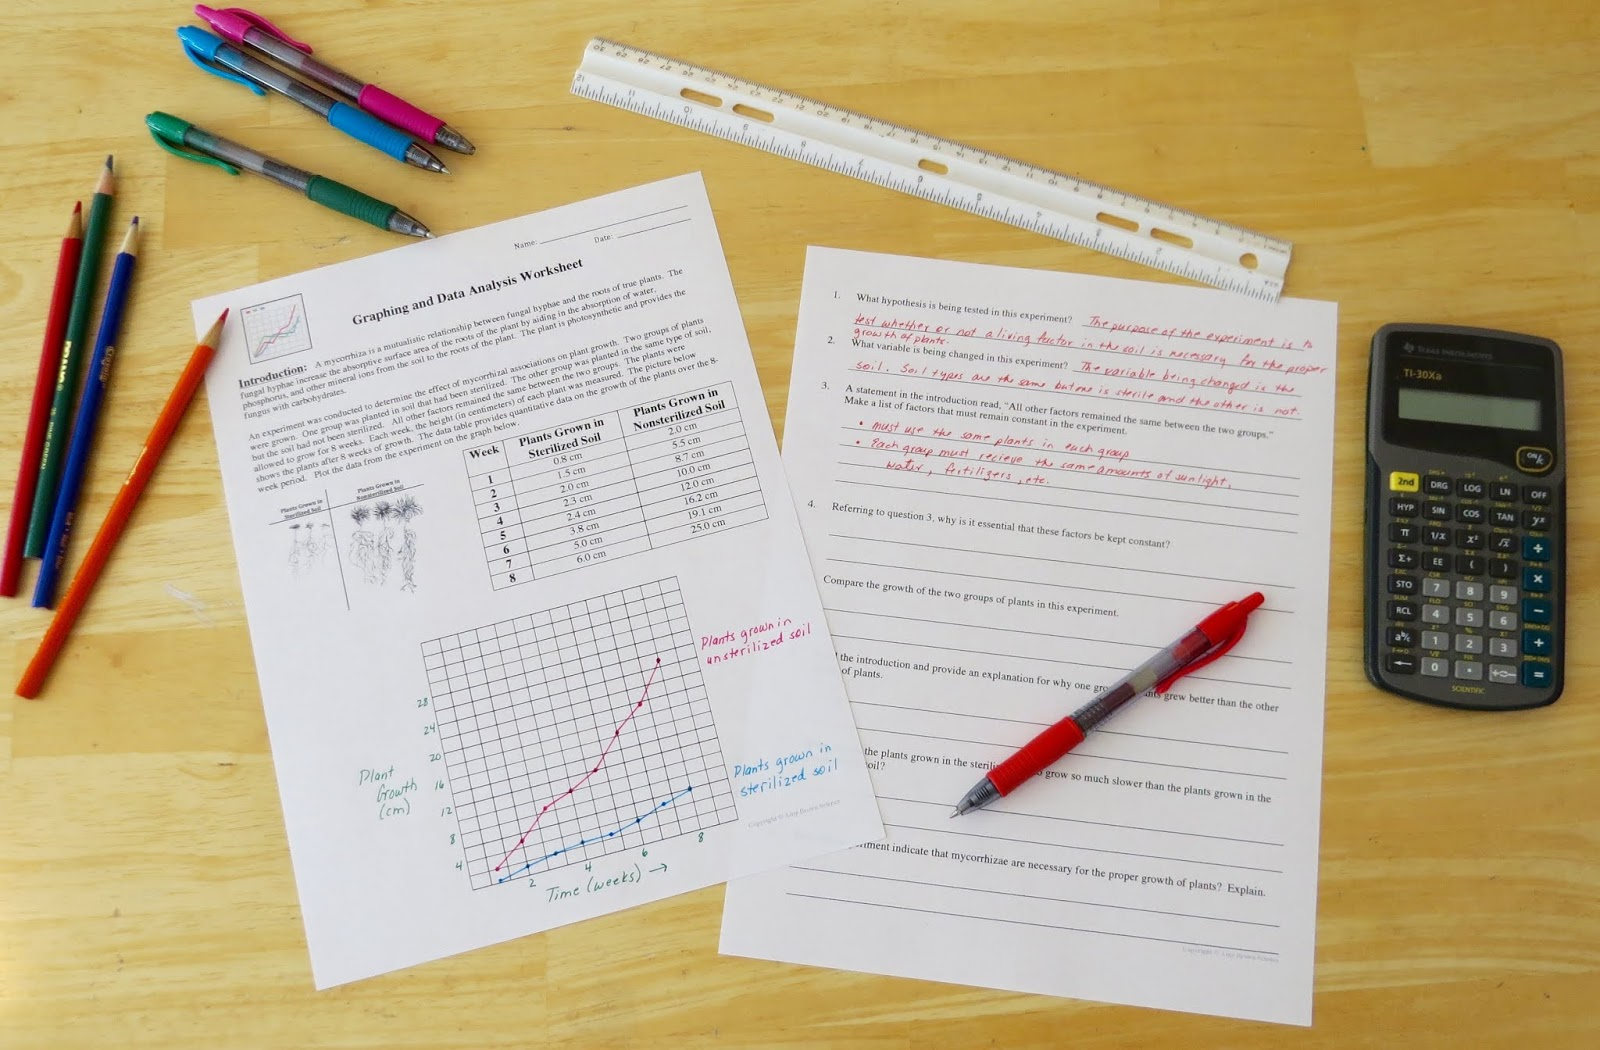 Name: Date:
Graphing and Data Analysis Worksheet
Introduction: A mycorrhiza is a mutualistic relationship between fungal hyphae and the roots of true plants. The
fungal hyphae increase the absorptive surface area of the roots of the plant by aiding in the absorption of water,
phosphorus, and other mineral ions from the soil to the roots of the plant. The plant is photosynthetic and provides the
fungus with carbohydrates.
An experiment was conducted to determine the effect of mycorrhizal associations on plant growth. Two groups of plants
were grown. One group was planted in soil that had been sterilized. The other group was planted in the same type of soil,
but the soil had not been sterilized. All other factors remained the same between the two groups. The plants were
allowed to grow for 8 weeks. Each week, the height (in centimeters) of each plant was measured. The picture below
shows the plants after 8 weeks of growth. The data table provides quantitative data on the growth of the plants over the 8-
week period. Plot the data from the experiment on the graph below.
Plants Grown in
Sterilized Soil
Plants Grown in
Nonsterilized Soil
Week Plants Grown in Sterilized Soil Plants Grown in Nonsterilized Soil
1 0.8 cm 2.0 cm
2 1.5 cm 5.5 cm
3 2.0 cm 8.7 cm
4 2.3 cm 10.0 cm
5 2.4 cm 12.0 cm
6 3.8 cm 16.2 cm
7 5.0 cm 19.1 cm
8 6.0 cm 25.0 cm
28
24
20
16
12
8
4
Plant
Growth
(cm)
2 4 6 8
Time (weeks) →
Plants grown in
unsterilized soil
Plants grown in
sterilized soil
1. What hypothesis is being tested in this experiment? The purpose of the experiment is to
test whether or not a living factor in the soil is necessary for the proper
growth of plants.
2. What variable is being changed in this experiment? The variable being changed is the
soil. Soil types are the same but one is sterile and the other is not.
3. A statement in the introduction read, "All other factors remained the same between the two groups."
Make a list of factors that must remain constant in the experiment.
• must use the same plants in each group
• Each group must recieve the same amounts of sunlight,
water, fertilizers, etc.
4. Referring to question 3, why is it essential that these factors be kept constant?
Compare the growth of the two groups of plants in this experiment.
the introduction and provide an explanation for why one grew better than the other
of plants.
the plants grown in the grow so much slower than the plants grown in the
soil?
indicate that mycorrhizae are necessary for the proper growth of plants? Explain.
TEXAS INSTRUMENTS
TI-30Xa
ON/C
2nd DRG LOG LN OFF
HYP SIN COS TAN yx
π 1/x x² √x ÷
Σ+ EE ( ) ×
STO 7 8 9 −
RCL 4 5 6 +
ab/c 1 2 3
← 0 . +⇆− =
SCIENTIFIC